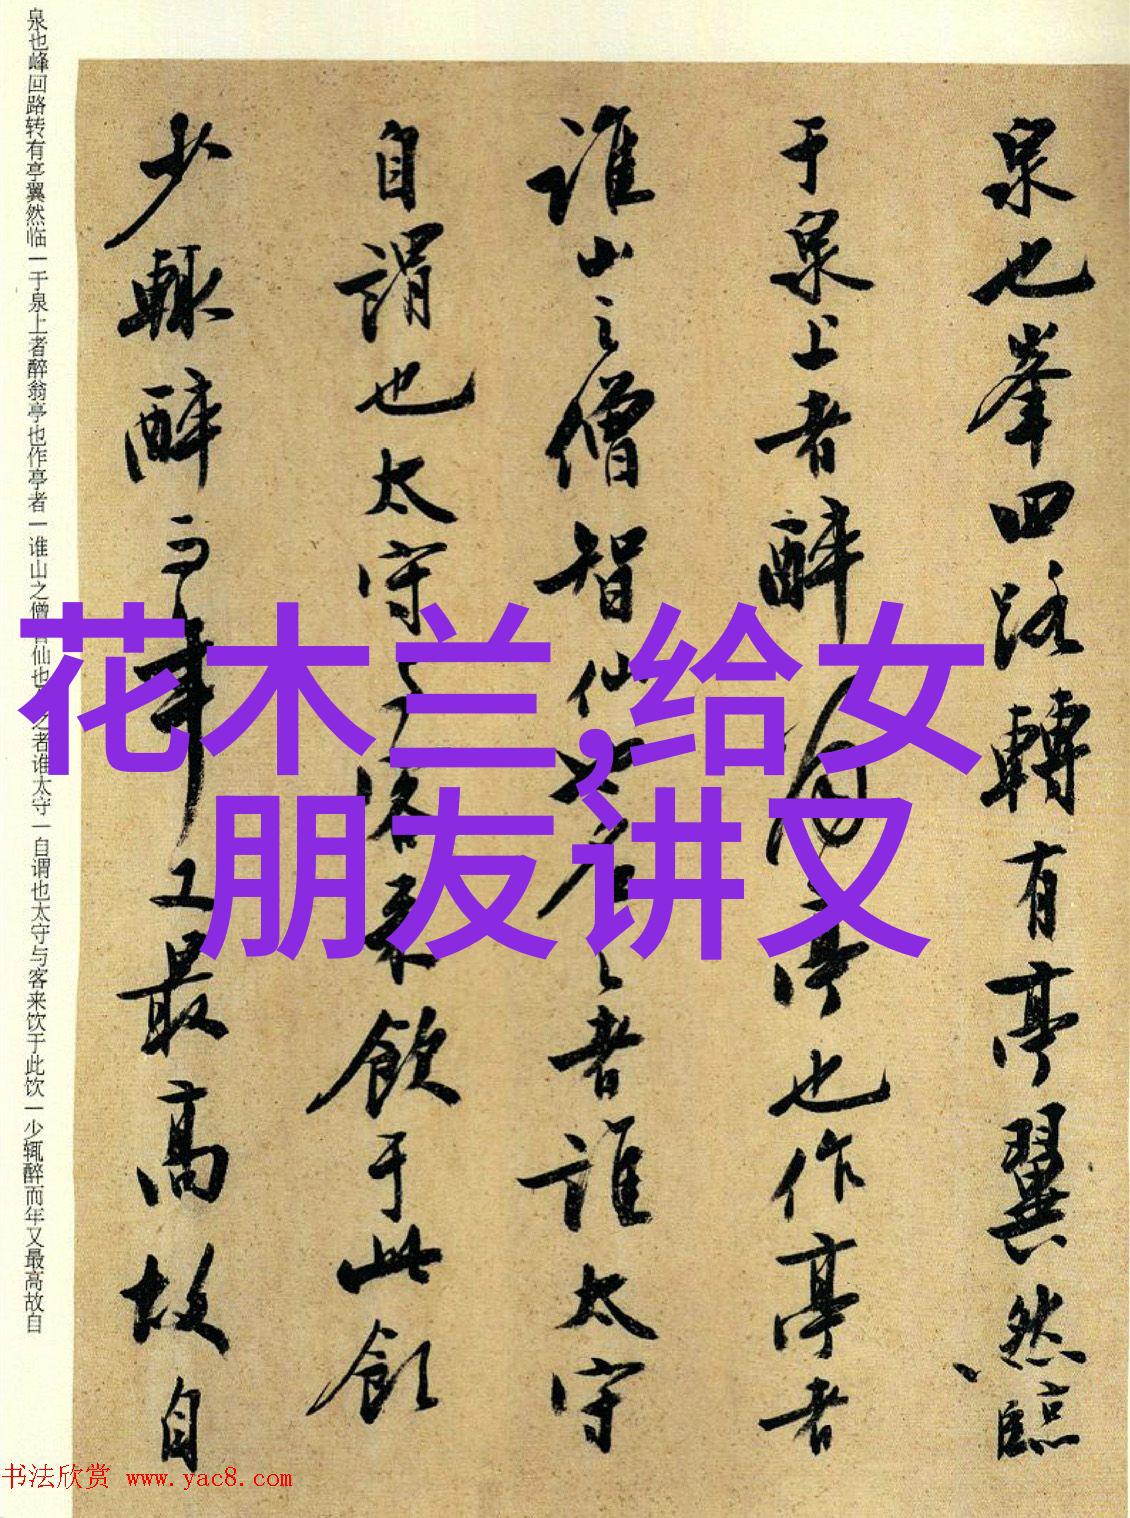 泉也峰回路转有亭翼然临一于泉上者醉翁亭也作亭者一谁山之僧智仙也之者谁太守一自谓也太守与客来饮于此饮一少辄醉而年又最高故自
泉也峯回路轉有亭翼然臨
于泉上者醉翁亭也作亭者
誰山之僧智仙也名之者誰太守
自謂也太守与客来飲于此飲
少輒醉而年又最高故自
花木兰,给女
朋友讲又
书法欣赏 www.yac8.com